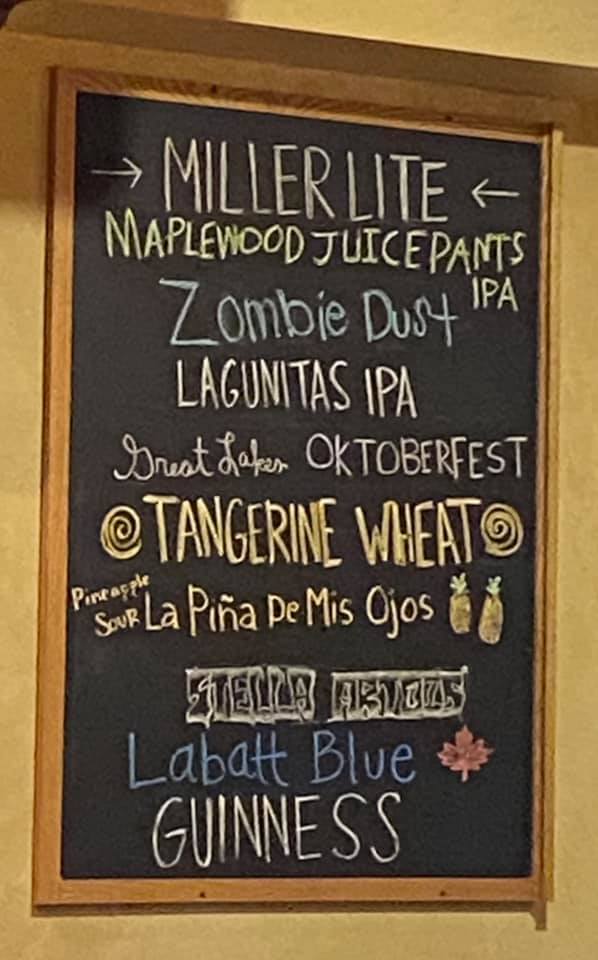 → MILLER LITE ←
MAPLEWOOD JUICEPANTS
IPA
Zombie Dust
LAGUNITAS IPA
Great Lakes OKTOBERFEST
TANGERINE WHEAT
Pineapple
Sour La Piña De Mis Ojos
STELLA ARTOIS
Labatt Blue
GUINNESS